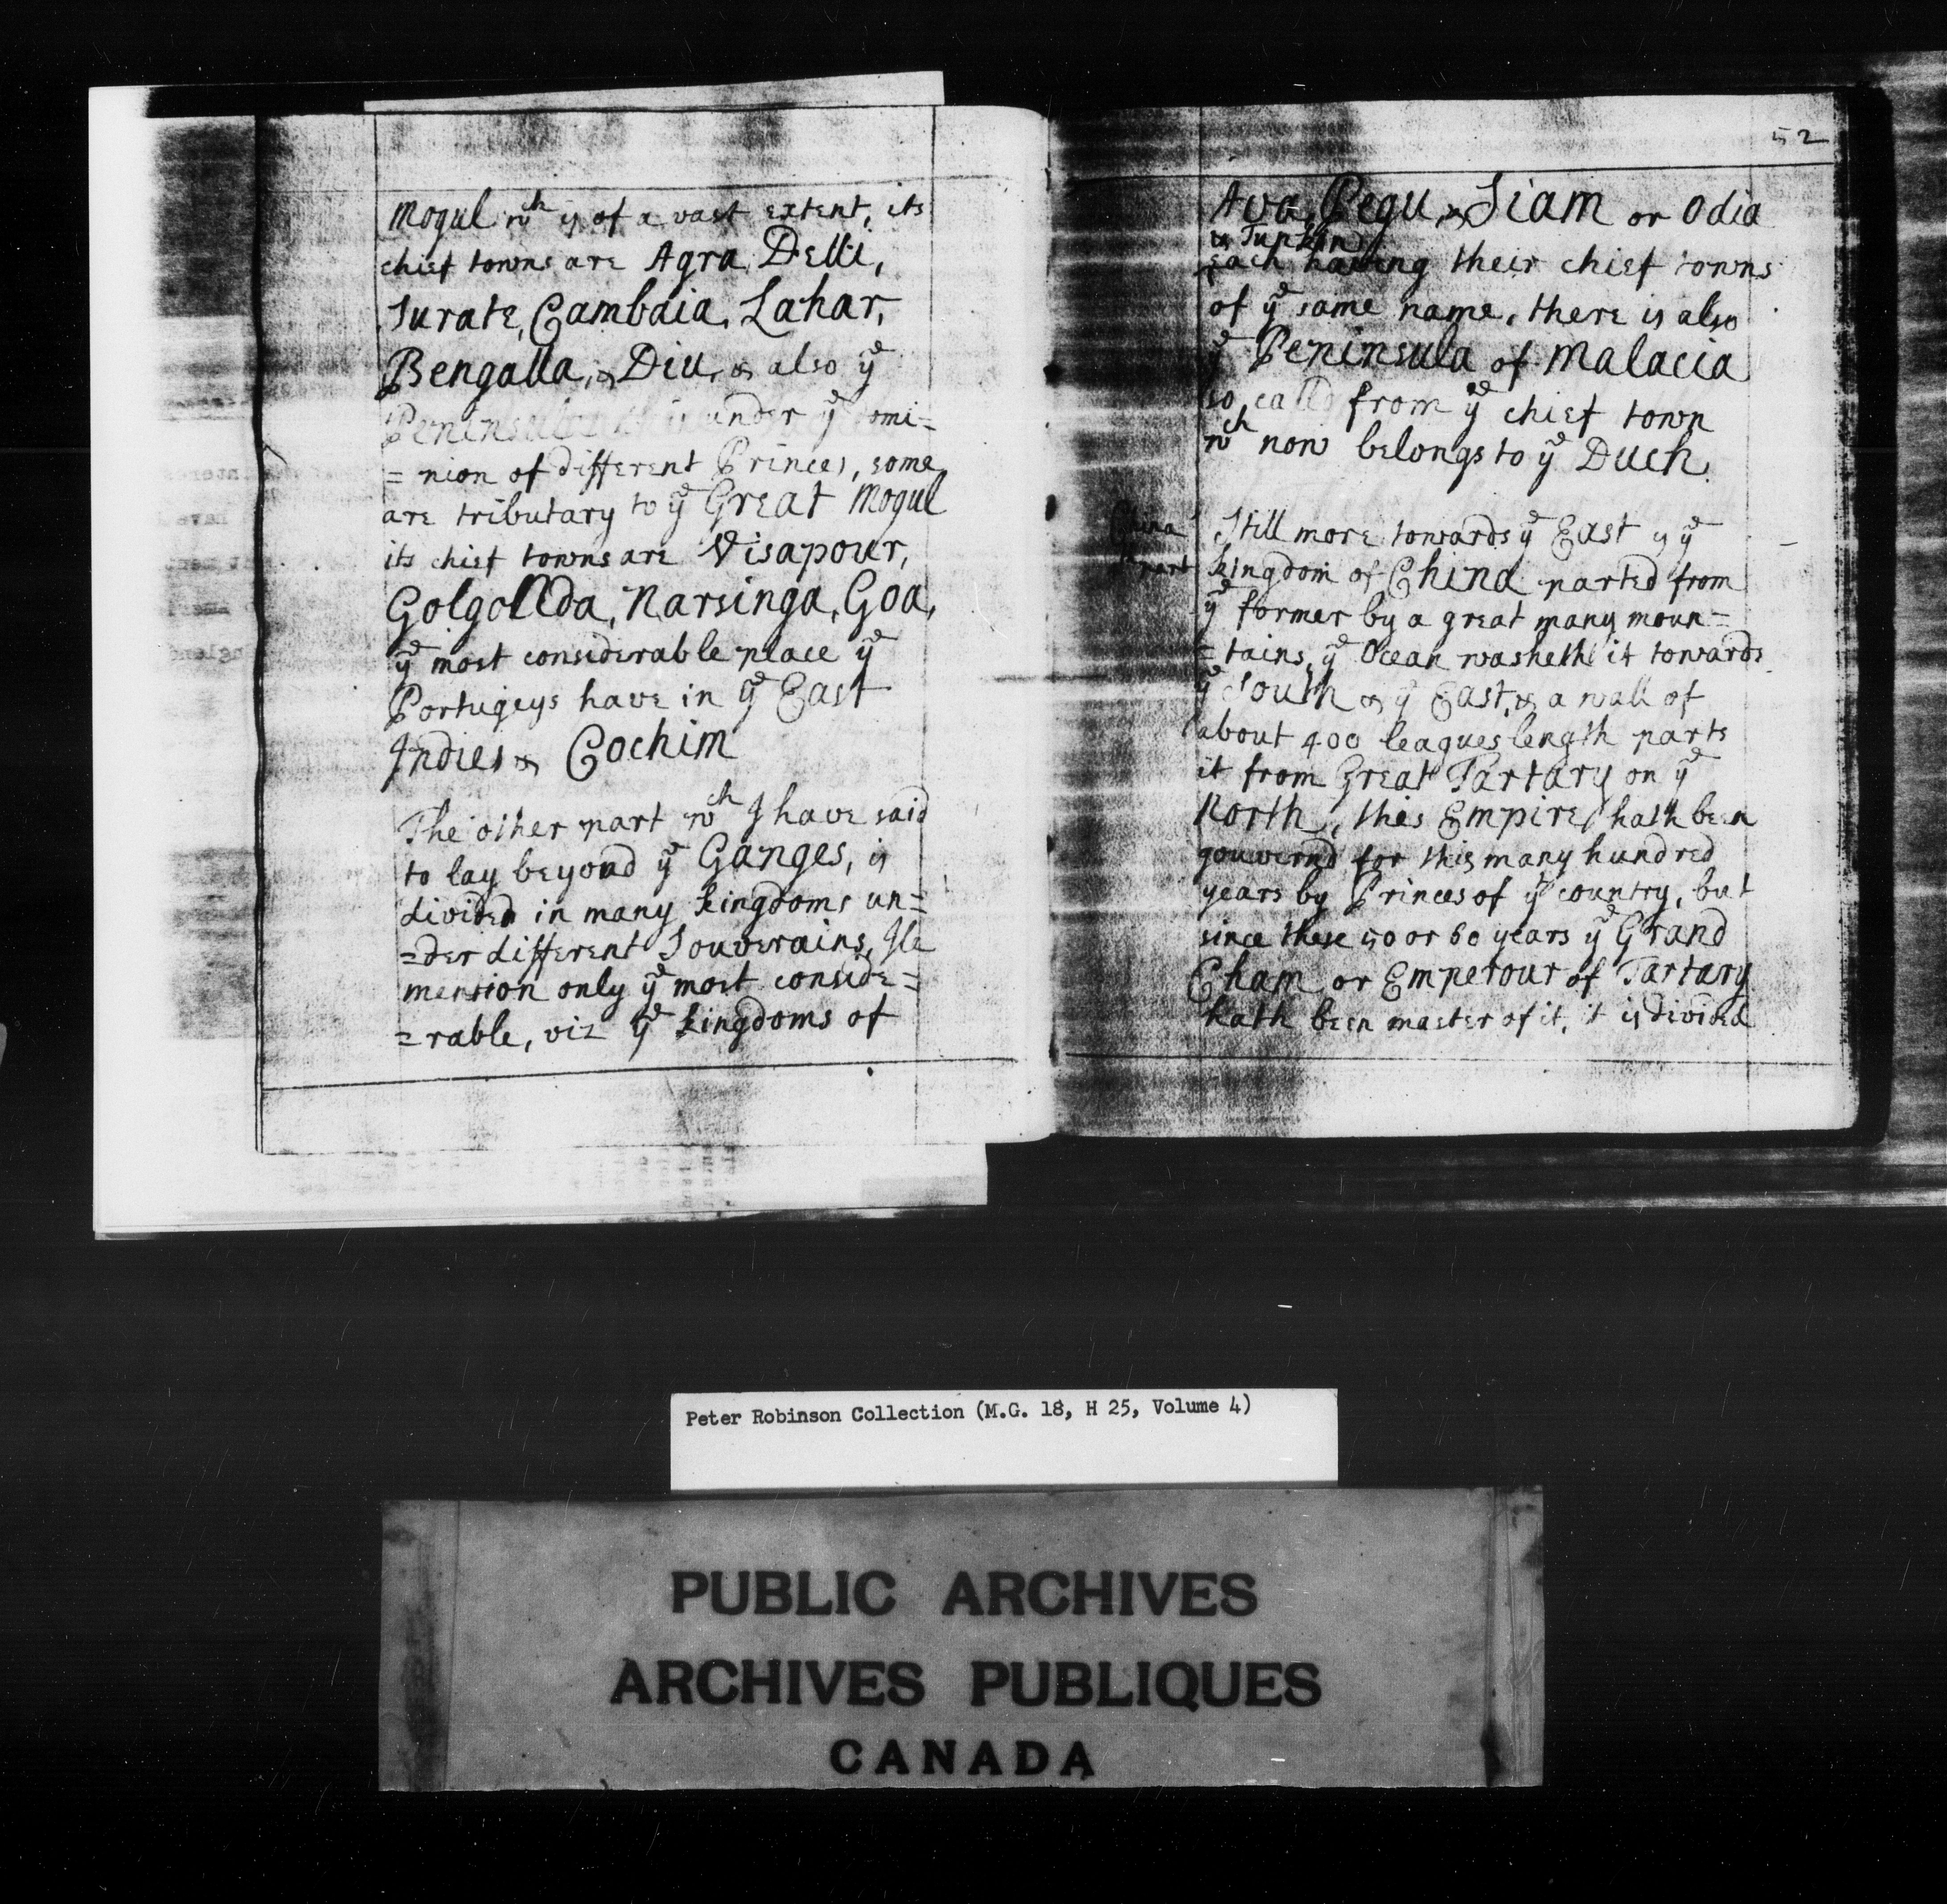 Mogul wch is of a vast extent, its
chief towns are Agra, Delli,
Surate, Cambaia, Lahar,
Bengalla, & Diu, & also ye
Peninsula under ye domi=
=nion of different Princes, some
are tributary to ye Great Mogul
its chief towns are Visapour,
Golgollda, Narsinga, Goa,
ye most considerable place ye
Portugeys have in ye East
Indies & Cochim
The other part wch I have said
to lay beyond ye Ganges, is
divided in many kingdoms un=
=der different Souverains, Ile
mention only ye most conside=
=rable, viz ye kingdoms of
52
Ava, Pegu, & Siam or Odia
& Tunkin
each having their chief towns
of ye same name, there is also
ye Peninsula of Malacia
so calld from ye chief town
wch now belongs to ye Duch.
China
part
Still more towards ye East is ye
kingdom of China parted from
ye former by a great many moun=
=tains, ye Ocean washeth it towards
ye South & ye East, & a wall of
about 400 leagues length parts
it from Great Tartary on ye
North, this Empire hath been
gouvernd for this many hundred
years by Princes of ye country, but
since these 50 or 60 years ye Grand
Cham or Emperour of Tartary
hath been master of it, it is divided
Peter Robinson Collection (M.G. 18, H 25, Volume 4)
PUBLIC ARCHIVES
ARCHIVES PUBLIQUES
CANADA